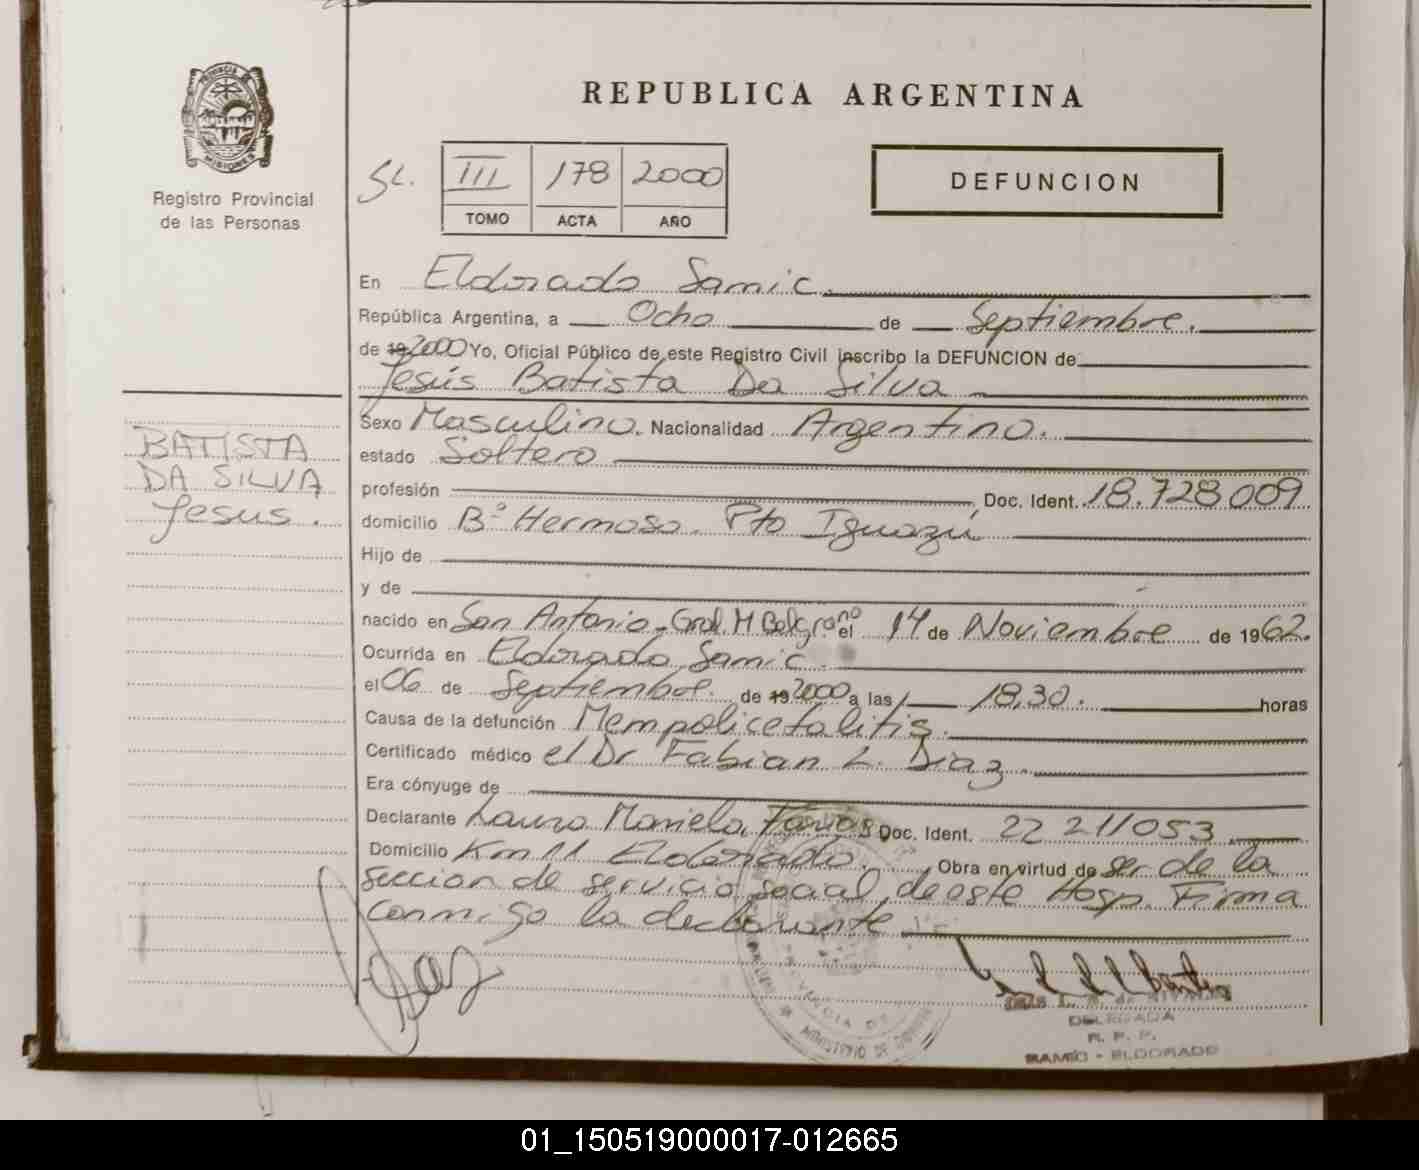 REPUBLICA ARGENTINA
PROVINCIA DE
MISIONES
Registro Provincial
de las Personas
SL.
III 178 2000
TOMO ACTA AÑO
DEFUNCION
En Eldorado Samic.
República Argentina, a Ocho de Septiembre.
de 19 2000 Yo, Oficial Público de este Registro Civil inscribo la DEFUNCION de
Jesús Batista Da Silva
Sexo Masculino. Nacionalidad Argentino.
estado Soltero
profesión Doc. Ident. 18.728.009
domicilio Bº Hermoso. Pto Iguazú
Hijo de
y de
nacido en San Antonio - Gral. M Belgrano el 14 de Noviembre de 1962.
Ocurrida en Eldorado Samic.
el 06 de Septiembre. de 19 2000 a las 18,30. horas
Causa de la defunción Mempolicefalitis.
Certificado médico el Dr Fabian L. Diaz.
Era cónyuge de
Declarante Laura Mariela Farias Doc. Ident. 22 211053
Domicilio Km 11 Eldorado. Obra en virtud de ser de la
seccion de servicio social, de este Hosp. Firma
conmigo la declarante
BATISTA
DA SILVA
Jesus.
DELEGADA
R. P. P.
SAMIC - ELDORADO
01_150519000017-012665